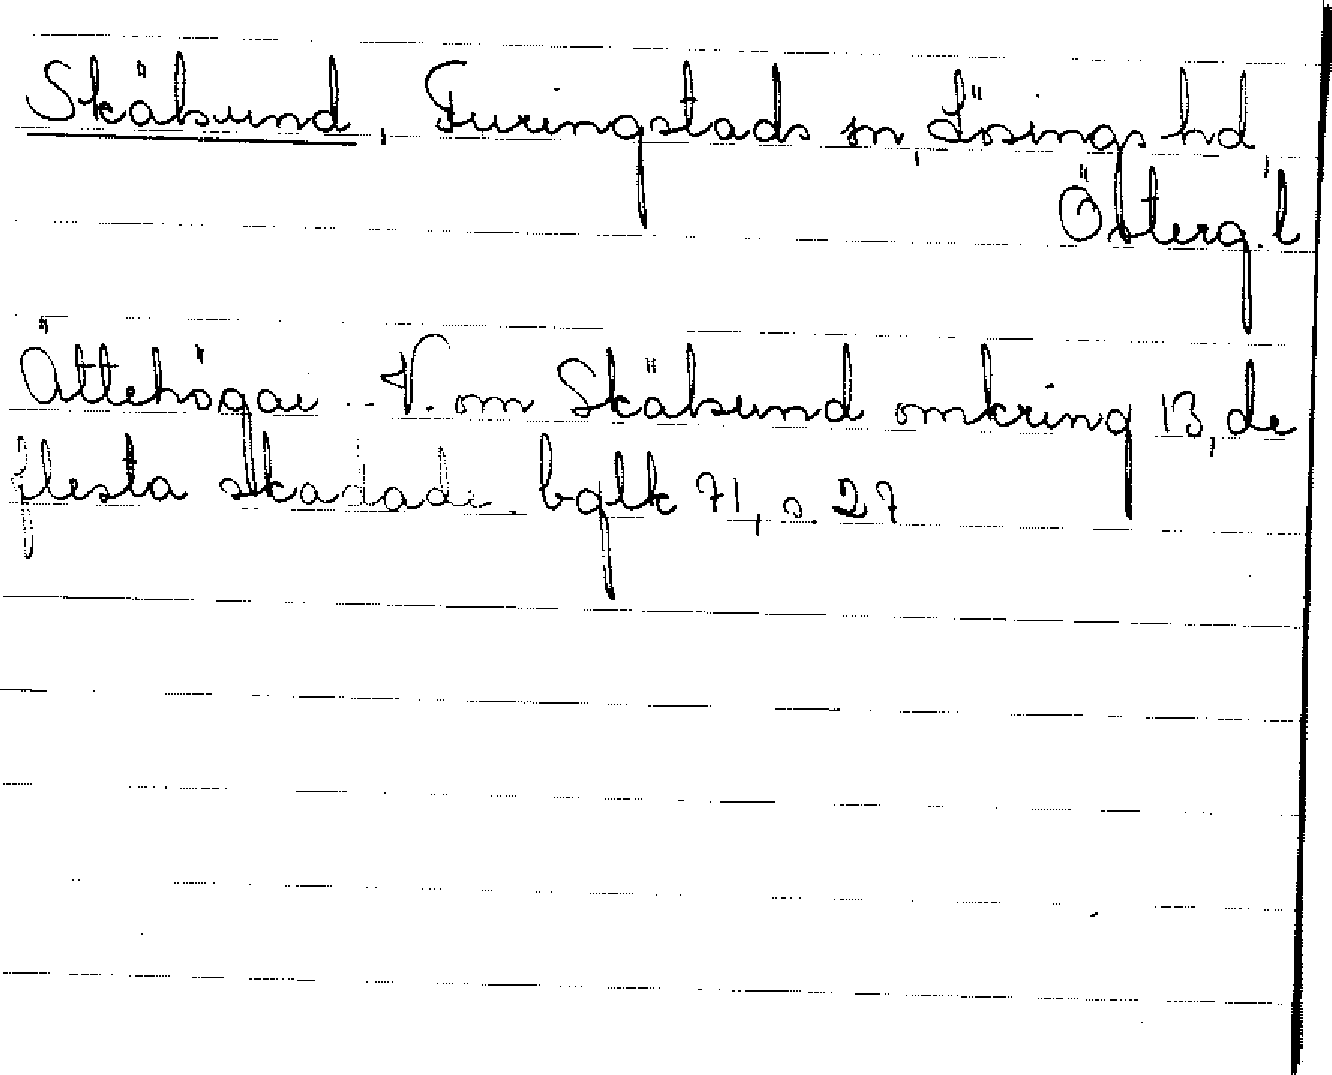 Skälsund, Furingstads sn, Lösings hd,
Österg. l
Ättehögar .. V. om Skälsund omkring 13, de
flesta skadade. bglk 71, s. 27